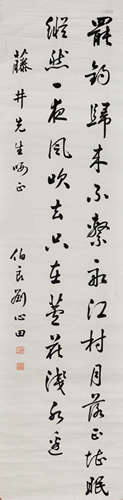 罷釣歸來不繫船江村月落正堪眠
縱然一夜風吹去只在蘆花淺水邊
藤井先生哂正
伯良劉心田